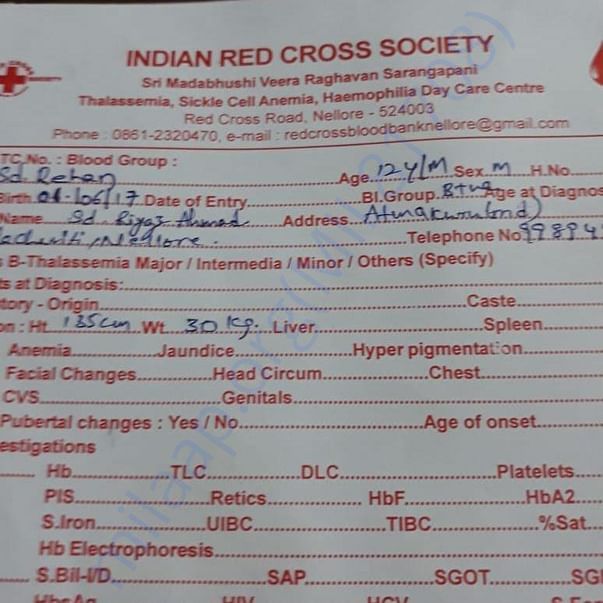 INDIAN RED CROSS SOCIETY
Sri Madabhushi Veera Raghavan Sarangapani
Thalassemia, Sickle Cell Anemia, Haemophilia Day Care Centre
Red Cross Road, Nellore - 524003
Phone : 0861-2320470, e-mail : redcrossbloodbanknellore@gmail.com
TC.No. : Blood Group :
Sd. Rehan Age 12 Y/M Sex M H.No.
Birth 01-06/17 Date of Entry Bl.Group. B+ve Age at Diagnos
Name Sd. Riyaz Ahmad Address
Nellore. Telephone No. 99894
B-Thalassemia Major / Intermedia / Minor / Others (Specify)
ts at Diagnosis:
tory - Origin Caste
on : Ht. 135cm Wt. 30 Kg. Liver Spleen
Anemia Jaundice Hyper pigmentation
Facial Changes Head Circum Chest
CVS Genitals
Pubertal changes : Yes / No Age of onset
estigations
Hb TLC DLC Platelets
PIS Retics HbF HbA2
S.Iron UIBC TIBC %Sat
Hb Electrophoresis
S.Bil-I/D SAP SGOT SG
HbsAg HIV HCV